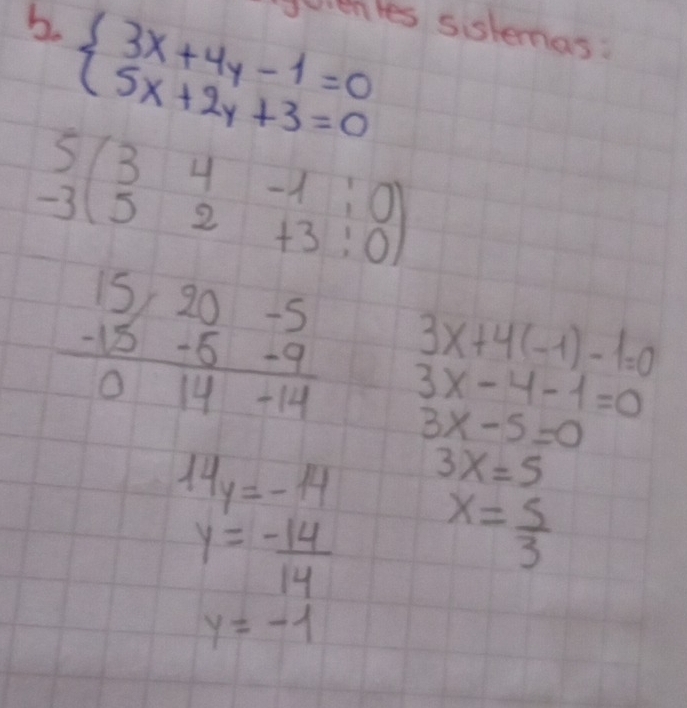 sistemas:
b. { 3x + 4y - 1 = 0
5x + 2y + 3 = 0
5 ( 3 4 -1 ⋮ 0 )
-3 ( 5 2 +3 ⋮ 0 )
15 20 -5
-15 -6 -9
0 14 -14
14y = -14
y = -14/14
y = -1
3x + 4(-1) - 1 = 0
3x - 4 - 1 = 0
3x - 5 = 0
3x = 5
x = 5/3